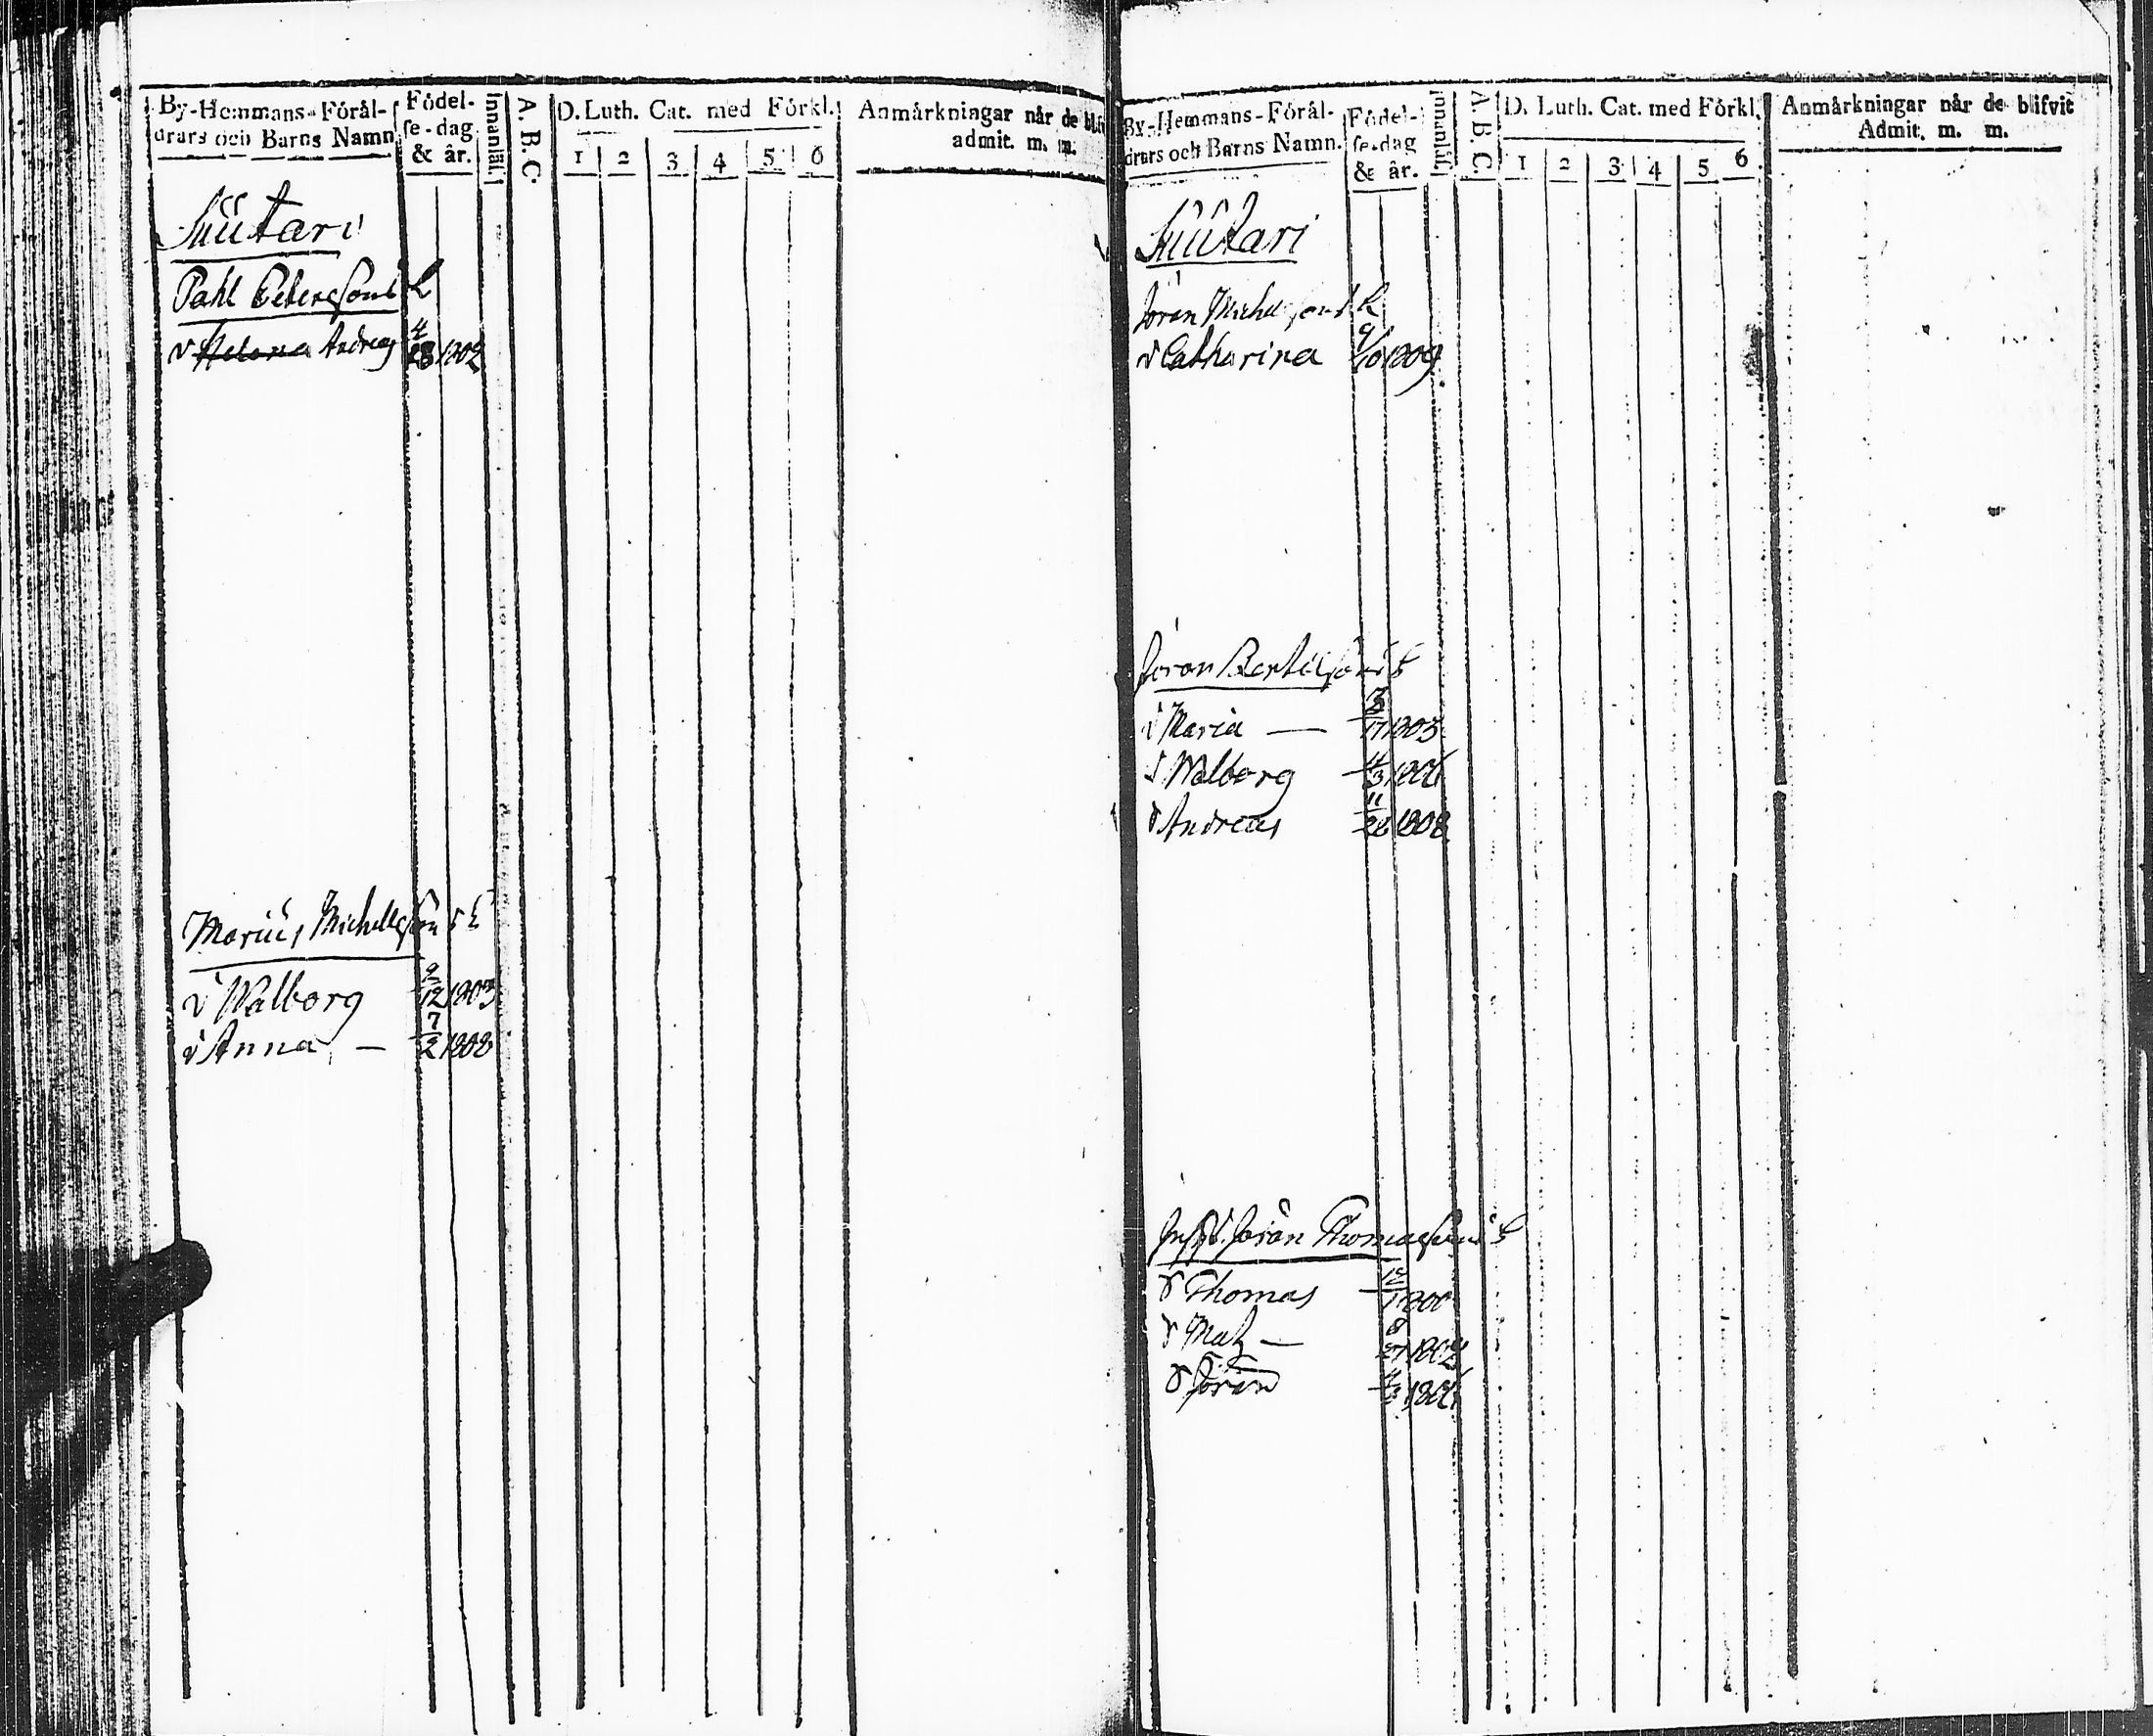 By-Hemmans-Förål-
drars och Barns Namn
Födel-
se-dag
& år.
Innanläs.
A. B. C.
D. Luth. Cat. med Förkl.
1 2 3 4 5 6
Anmärkningar når de blifv
admit. m. m.
Suutari
Pahl Petersons
Helena Andreas 4/28 1802
Marius Michellsons
Walborg 9/12 1803
Anna — 7/2 1808
By-Hemmans-Förål-
drars och Barns Namn.
Födel-
se-dag
& år.
Innanläs.
A. B. C.
D. Luth. Cat. med Förkl.
1 2 3 4 5 6
Anmärkningar når de blifvit
Admit. m. m.
Suutari
Jöran Michelsons
Catharina 9/10 1809
Jöran Bertilsons
Maria — 17 1803
Walborg 4/3 1806
Andreas 11/26 1808
Jöran Thomasons
Thomas 12/1 1800
Matz — 8 1802
Jöran 1806